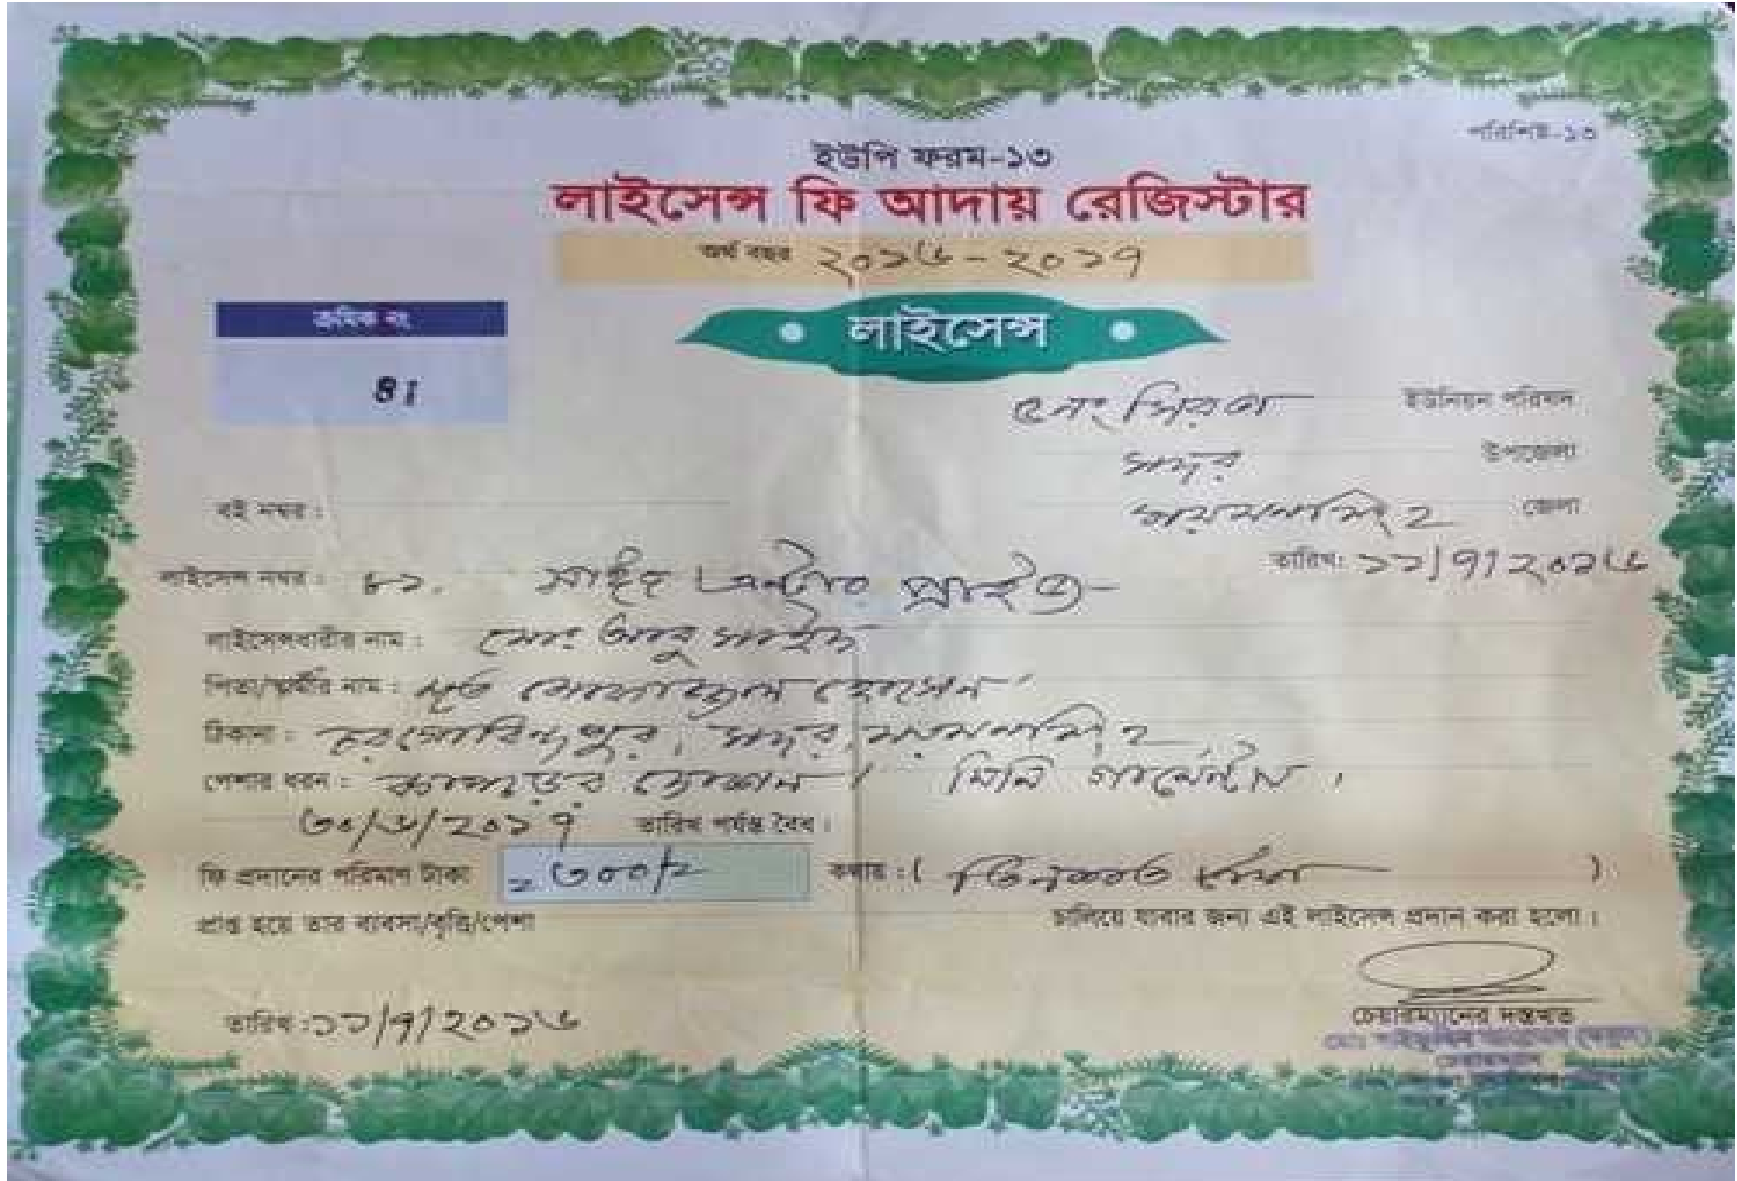 পরিশিষ্ট-১৩
ইউপি ফরম-১৩
লাইসেন্স ফি আদায় রেজিস্টার
অর্থ বছর ২০১৬-২০১৭
ক্রমিক নং
লাইসেন্স
৪১
৫নং সিরতা ইউনিয়ন পরিষদ
সদর উপজেলা
বই নম্বর :
ময়মনসিংহ জেলা
তারিখ: ১১/৭/২০১৬
লাইসেন্স নম্বর : ৮১. সাঈদ এন্টার প্রাইজ
লাইসেন্সধারীর নাম : মোঃ আবু সাইদ
পিতা/স্বামীর নাম : মৃত হোসেন
ঠিকানা : চরগোবিন্দপুর, সদর, ময়মনসিংহ
পেশার ধরন : কাপড়ের দোকান। মিনি গার্মেন্টস।
৩০/৬/২০১৭ তারিখ পর্যন্ত বৈধ।
ফি প্রদানের পরিমাণ টাকা = ৩০০/= কথায় : ( তিনশত টাকা )
প্রাপ্ত হয়ে তার ব্যবসা/বৃত্তি/পেশা চালিয়ে যাবার জন্য এই লাইসেন্স প্রদান করা হলো।
তারিখ : ১১/৭/২০১৬
চেয়ারম্যানের দস্তখত
চেয়ারম্যান